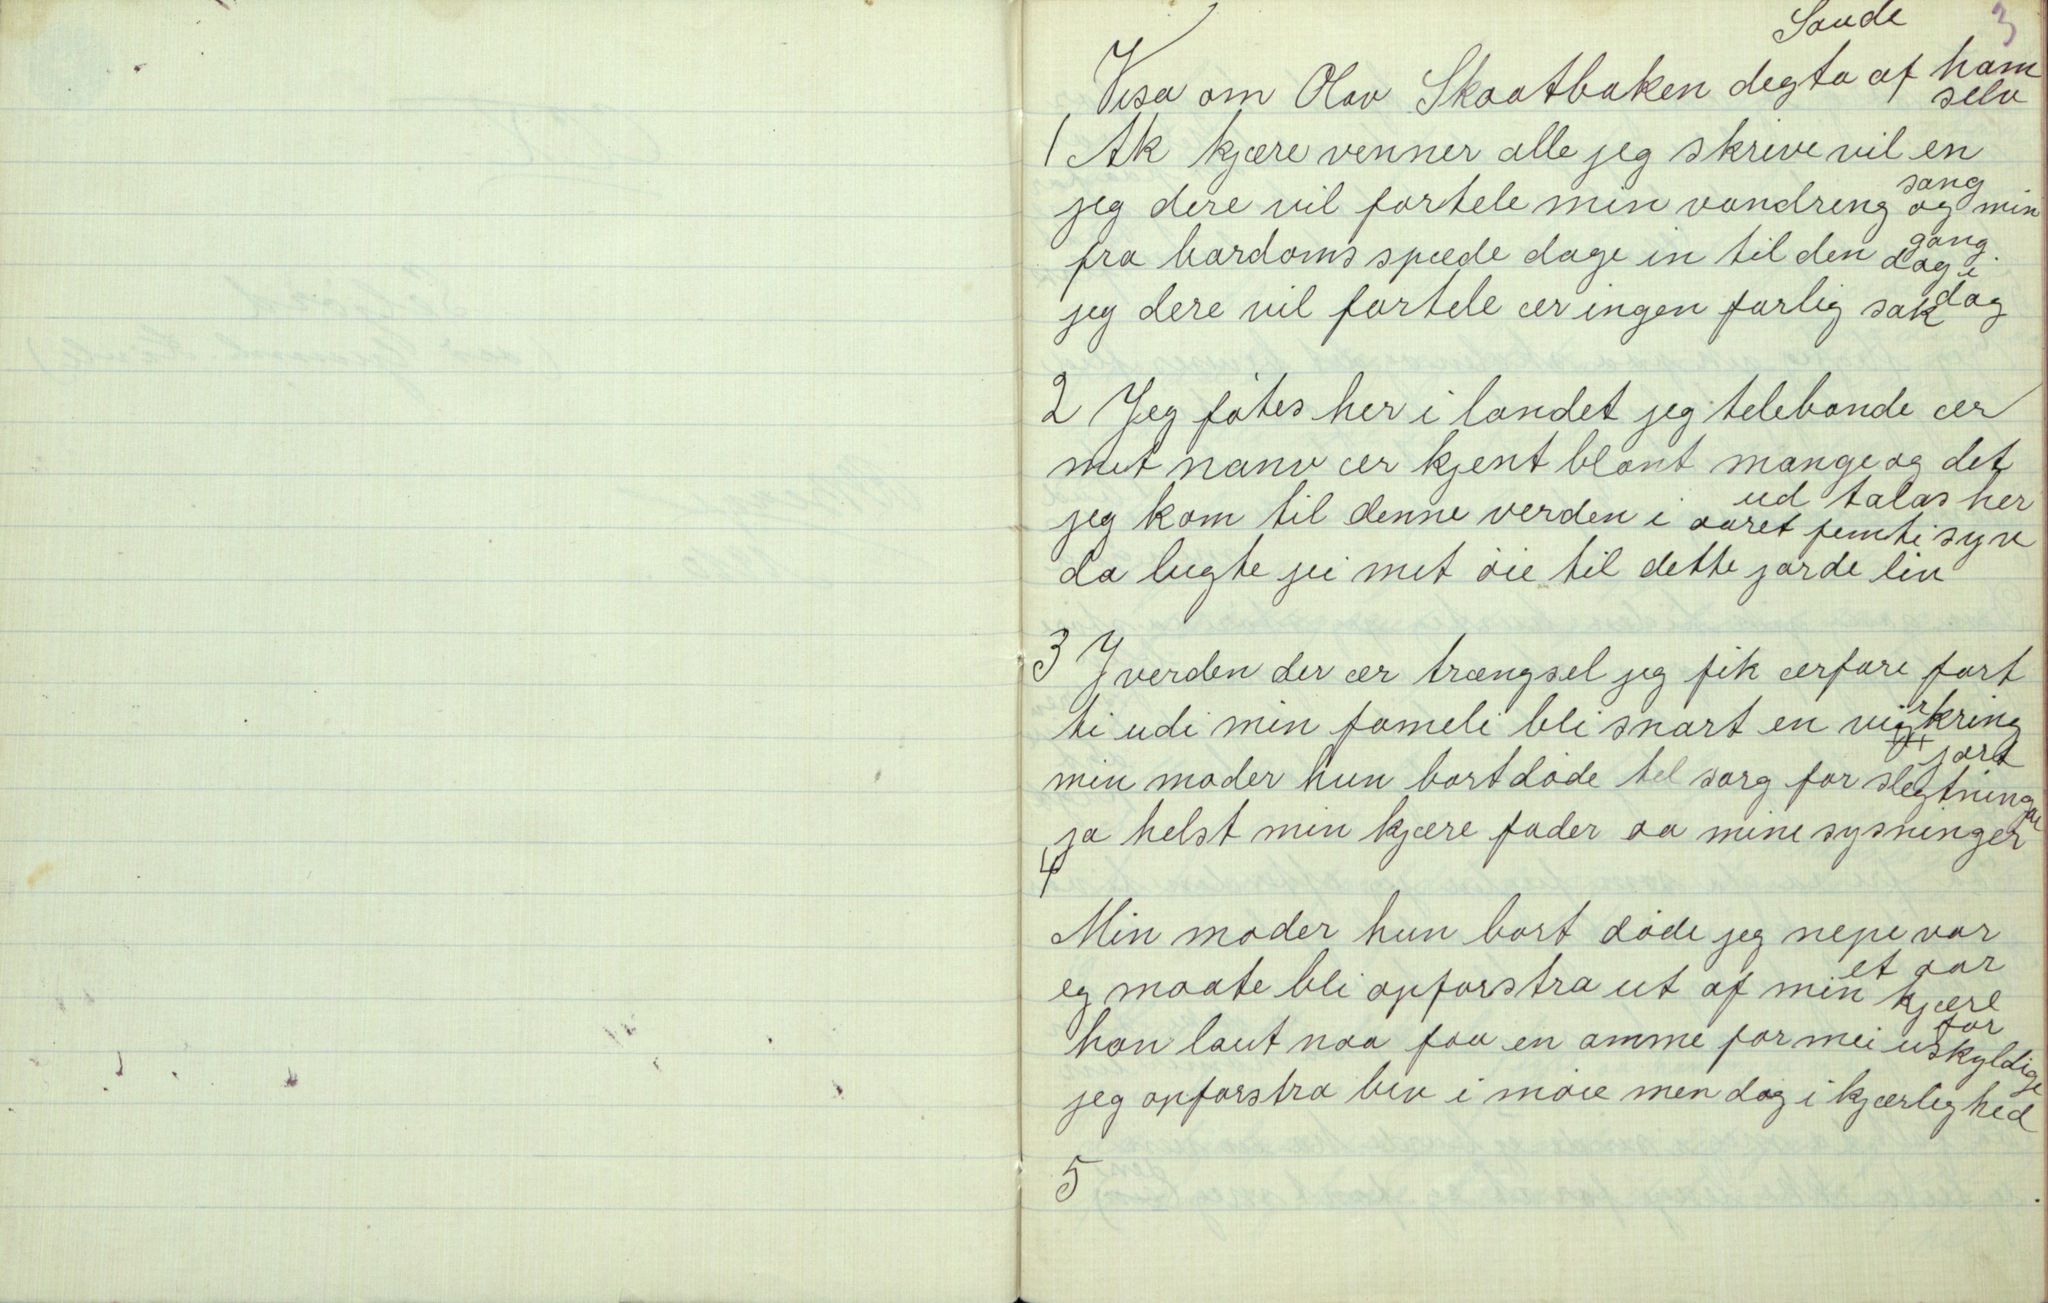 Saude 3
Visa om Olav Skaatbaken degta af ham selv
1 Ak kjære venner alle jeg skrive vil en sang
jeg dere vil fortele min vandreng og min gang
fra bardoms spæde dage in til den dag i dag
jeg dere vil fortele ær ingen farlig sak
2 Jeg fötes her i landet jeg telebonde ær
mit nanv ær kjent blant mange og det ud talas her
jeg kom til denne verden i aaret femti syv
da lugte jei mit öie til dette jorde liv
3 I verden der ær trængsel jeg fik ærfare fort
ti udi min fameli bli snart en virkring jort
min moder hun bortdöde tel sorg for slegtningar
ja helst min kjære fader aa mine sysninger
4
Min moder hun bort döde jeg nepe var et aar
eg maate bli opforstra ut af min kjære far
han laut naa faa en amme for mei uskyldige
jeg opforstra blv i möie men dog i kjærleghed
5